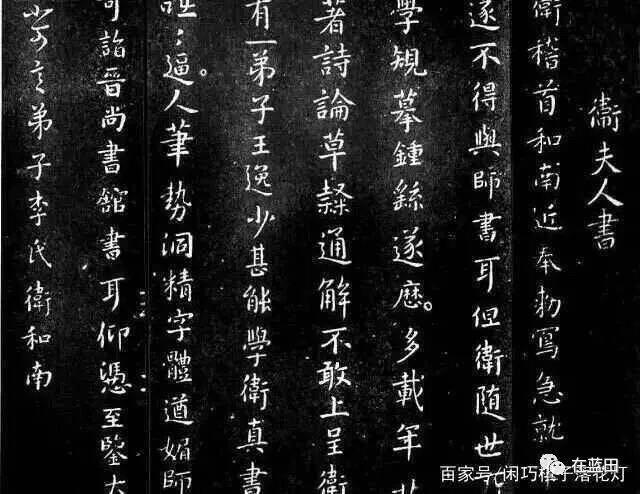 衛夫人書
衛稽首和南近奉勅寫急就
遂不得與師書耳但衛随世
學規摹鍾繇遂歷多載年廿
著詩論草隸通解不敢上呈衛
有一弟子王逸少甚能學衛真書
咄咄逼人筆勢洞精字體遒媚師
可詣晉尚書館書耳仰憑至鑒大
弟子李氏衛和南
在蓝田
百家号/闲巧棋子落花灯